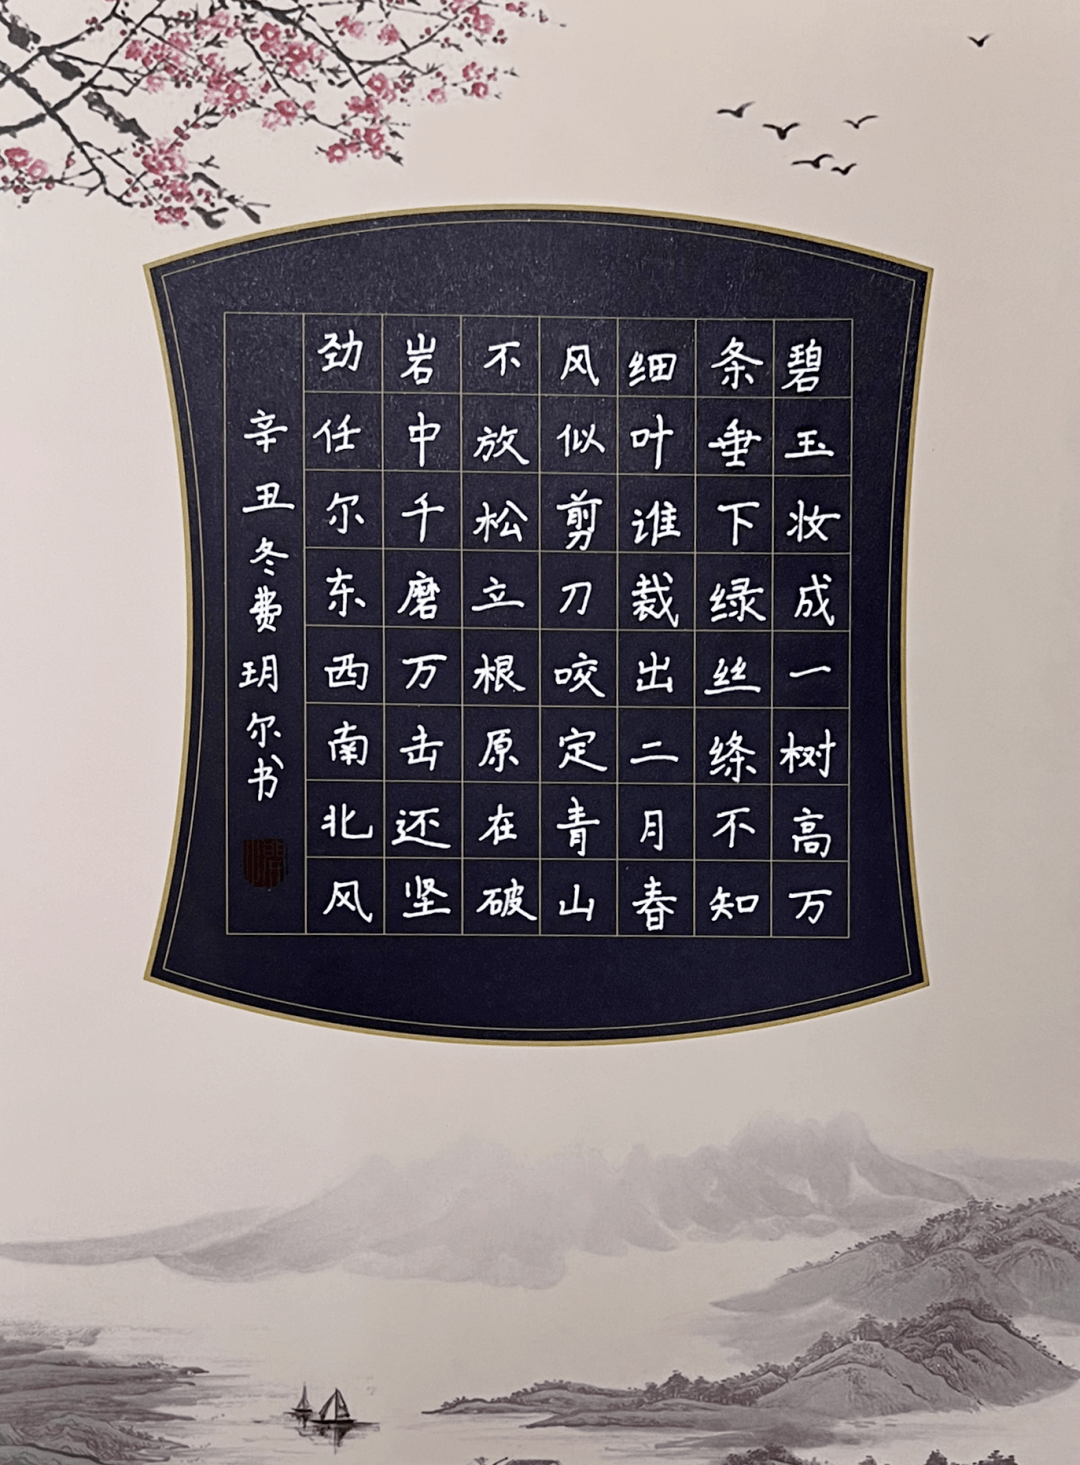 碧玉妆成一树高万
条垂下绿丝绦不知
细叶谁裁出二月春
风似剪刀咬定青山
不放松立根原在破
岩中千磨万击还坚
劲任尔东西南北风
辛丑冬费玥尔书